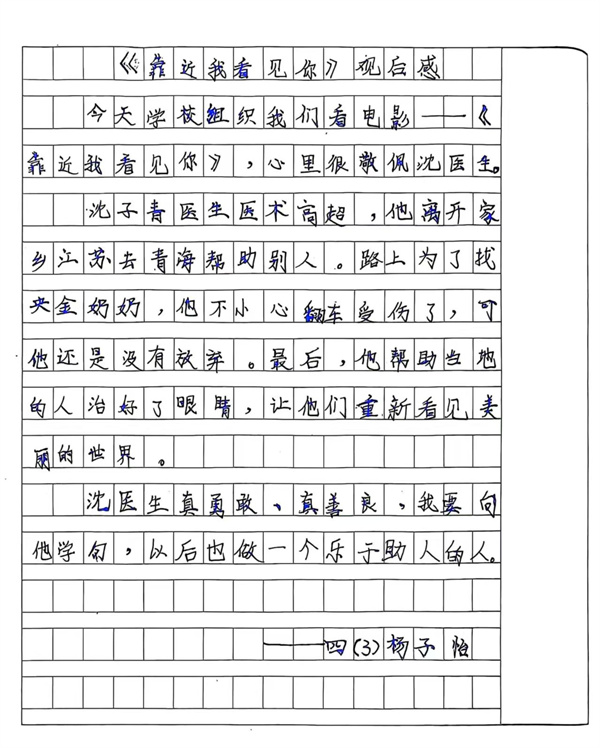 《靠近我看见你》观后感
今天学校组织我们看电影——《
靠近我看见你》，心里很敬佩沈医生。
沈子青医生医术高超，他离开家
乡江苏去青海帮助别人。路上为了找
央金奶奶，他不小心翻车受伤了，可
他还是没有放弃。最后，他帮助当地
的人治好了眼睛，让他们重新看见美
丽的世界。
沈医生真勇敢、真善良，我要向
他学习，以后也做一个乐于助人的人。
——四(3)杨子怡